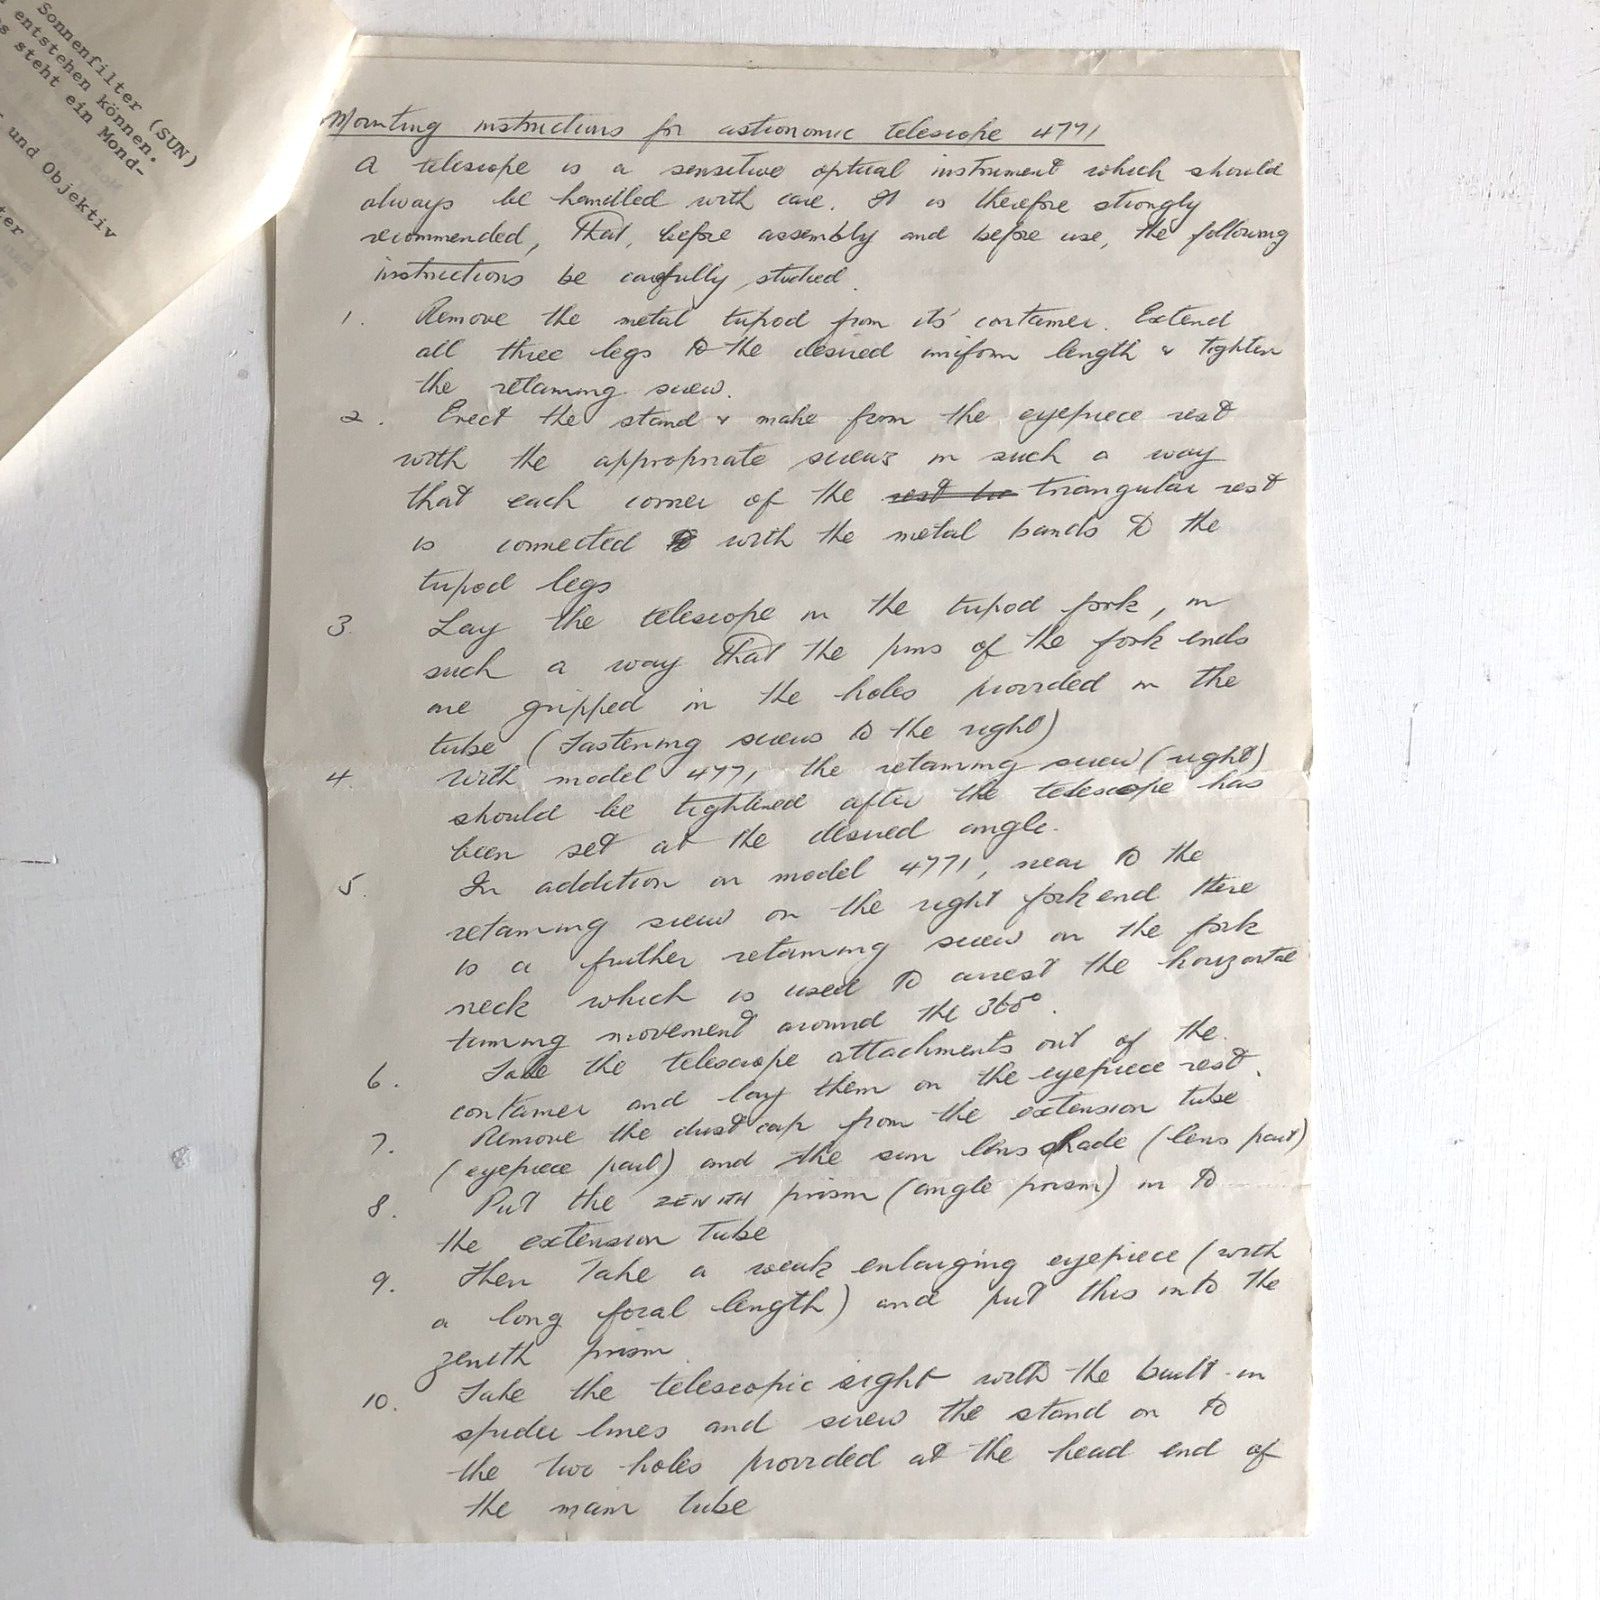 Sonnenfilter (SUN)
entstehen können.
steht ein Mond-
und Objektiv
Mounting instructions for astronomic telescope 4771
A telescope is a sensitive optical instrument which should
always be handled with care. It is therefore strongly
recommended, that, before assembly and before use, the following
instructions be carefully studied.
1. Remove the metal tripod from its' container. Extend
all three legs to the desired uniform length & tighten
the retaining screw.
2. Erect the stand & make from the eyepiece rest
with the appropriate screws in such a way
that each corner of the rest triangular rest
is connected to with the metal bands to the
tripod legs
3. Lay the telescope in the tripod fork, in
such a way that the pins of the fork ends
are gripped in the holes provided in the
tube (Fastening screws to the right)
4. With model 4771 the retaining screw (right)
should be tightened after the telescope has
been set at the desired angle.
5. In addition on model 4771, near to the
retaining screw on the right fork end there
is a further retaining screw on the fork
neck which is used to arrest the horizontal
turning movement around the 360°.
6. Take the telescope attachments out of the
container and lay them on the eyepiece rest.
7. Remove the dust cap from the extension tube
(eyepiece part) and the sun lens shade (lens part)
8. Put the ZENITH prism (angle prism) in to
the extension tube
9. Then take a weak enlarging eyepiece (with
a long focal length) and put this into the
zenith prism.
10. Take the telescopic sight with the built-in
spider lines and screw the stand on to
the two holes provided at the head end of
the main tube